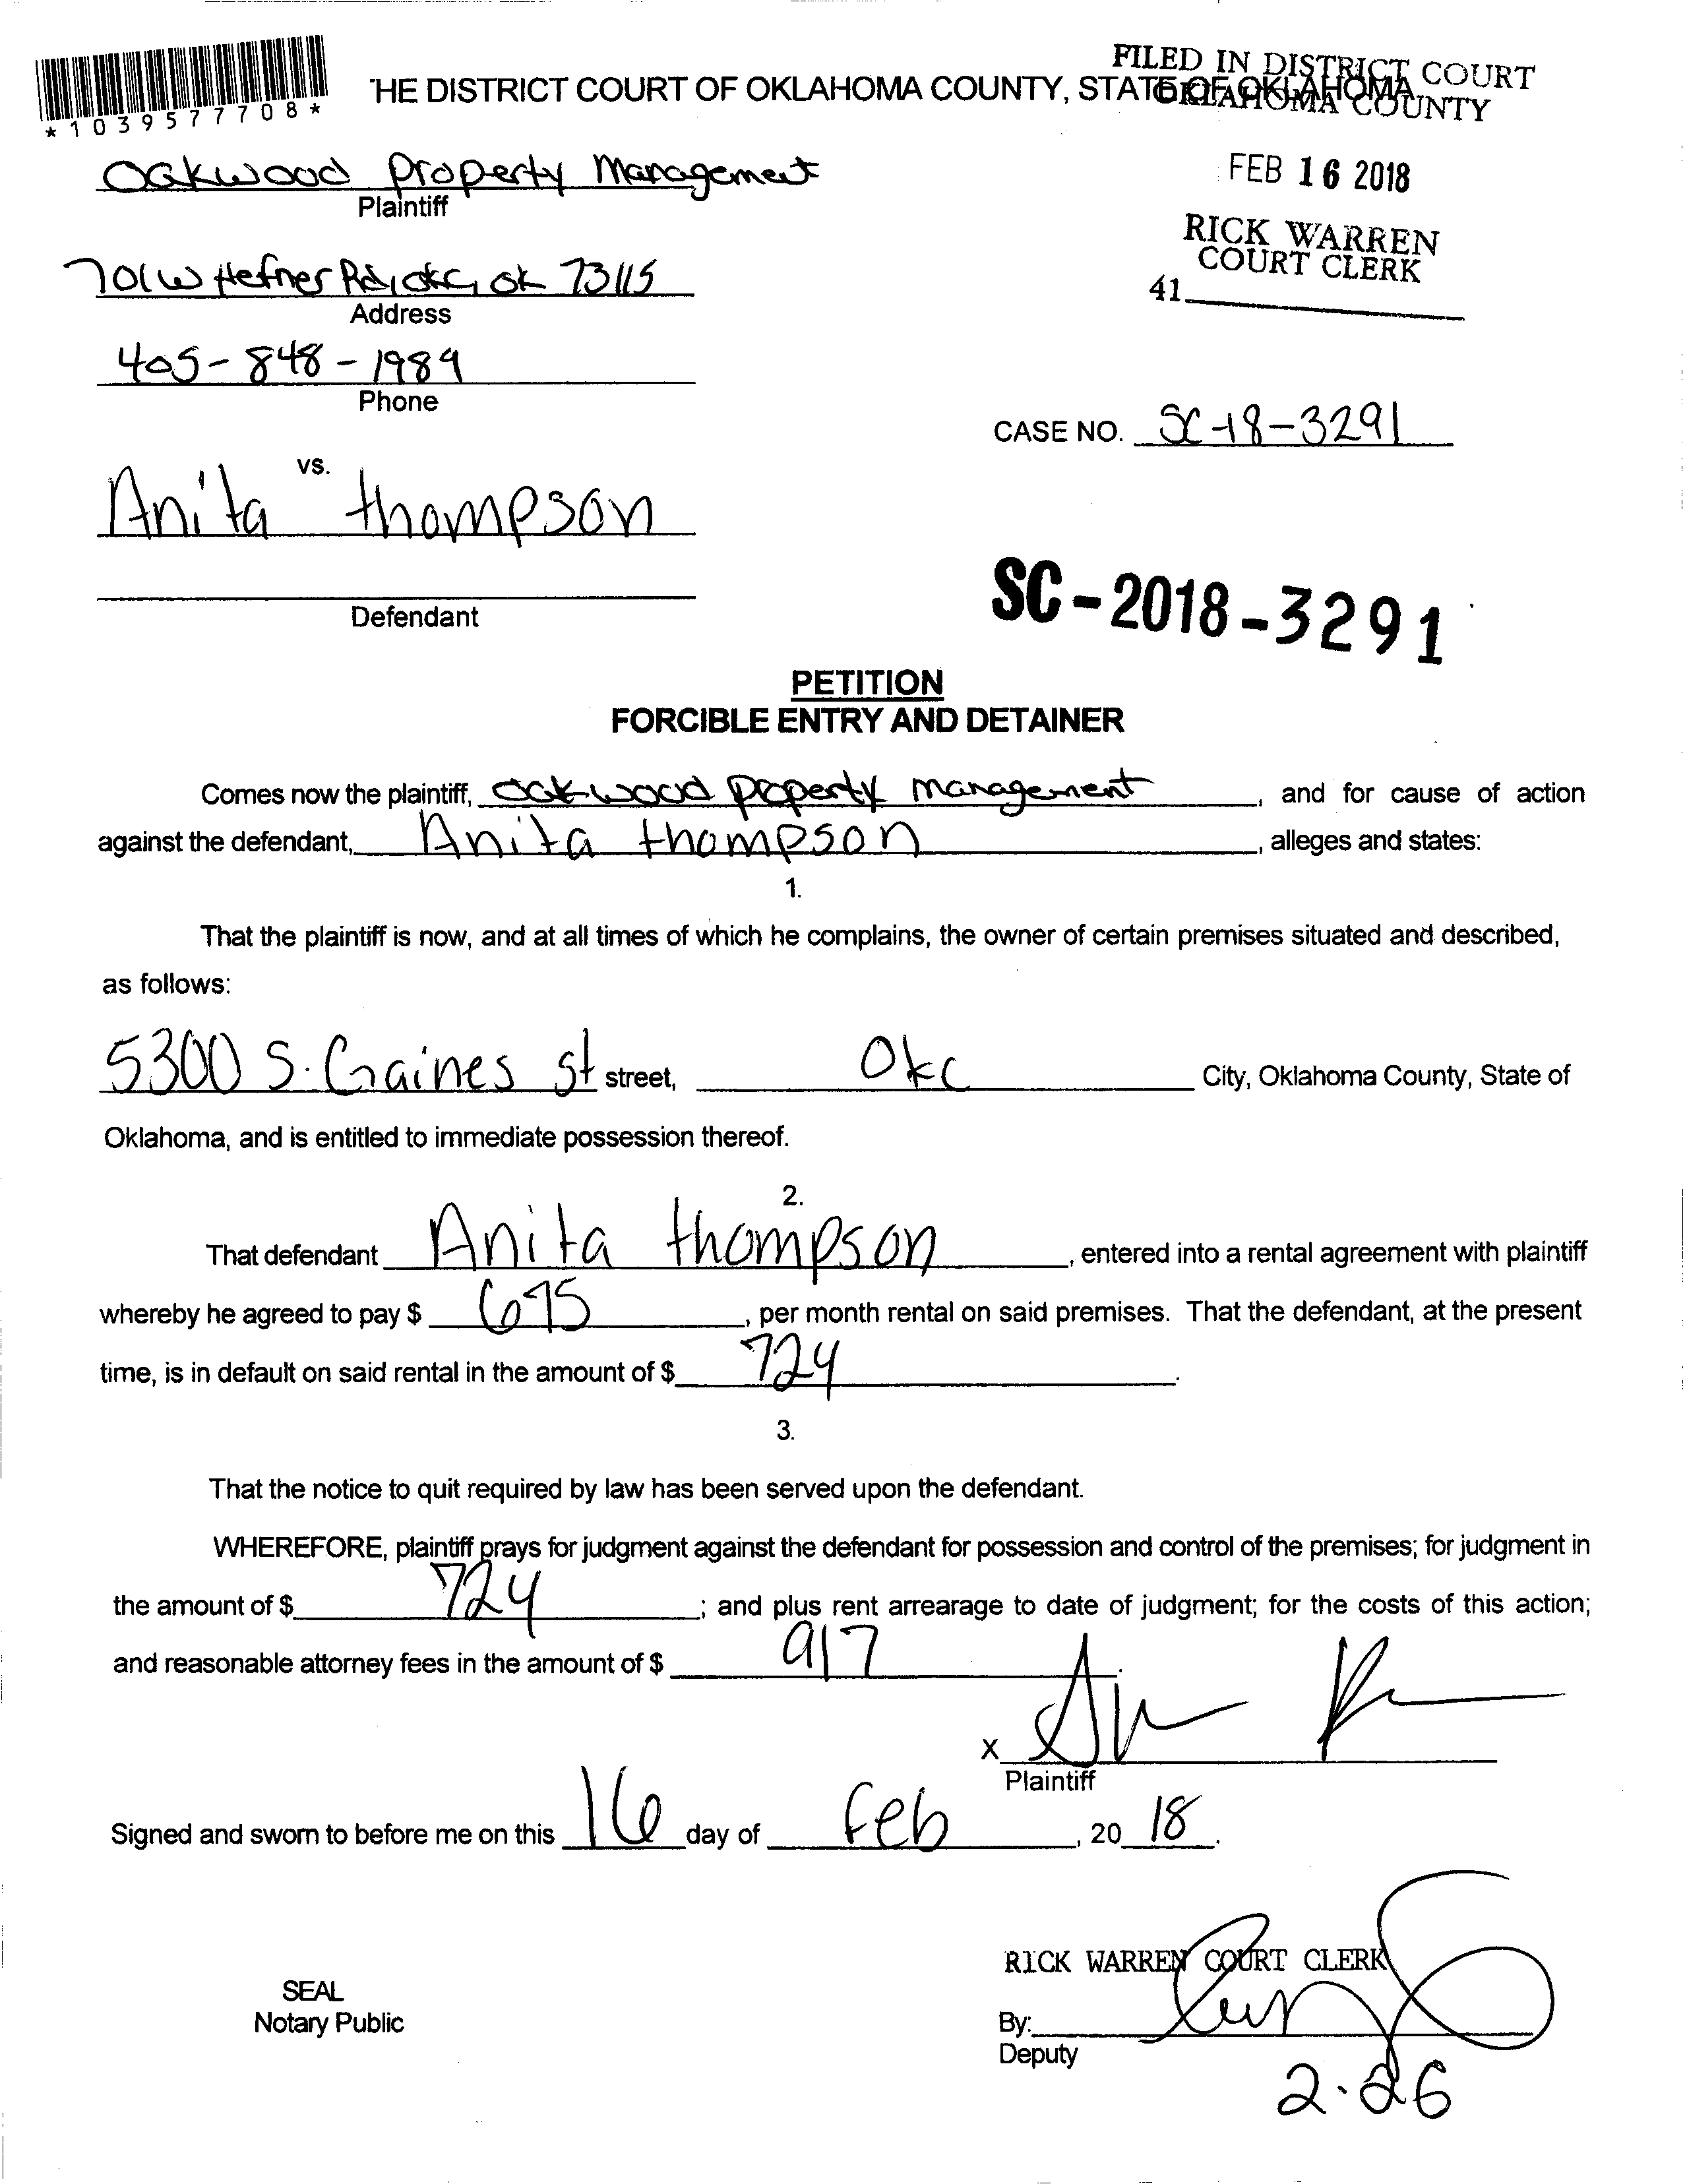 *1039577708*
FILED IN DISTRICT COURT
OKLAHOMA COUNTY
'HE DISTRICT COURT OF OKLAHOMA COUNTY, STATE OF OKLAHOMA
Oakwood Property Management
Plaintiff
FEB 16 2018
RICK WARREN
COURT CLERK
41
701 W Hefner Rd, OKC, OK 73115
Address
405-848-1989
Phone
CASE NO. SC-18-3291
vs.
Anita thompson
Defendant
SC-2018-3291
PETITION
FORCIBLE ENTRY AND DETAINER
Comes now the plaintiff, Oakwood Property management, and for cause of action
against the defendant, Anita thompson, alleges and states:
1.
That the plaintiff is now, and at all times of which he complains, the owner of certain premises situated and described,
as follows:
5300 S. Gaines st street, Okc City, Oklahoma County, State of
Oklahoma, and is entitled to immediate possession thereof.
2.
That defendant Anita thompson, entered into a rental agreement with plaintiff
whereby he agreed to pay $ 675, per month rental on said premises. That the defendant, at the present
time, is in default on said rental in the amount of $ 724.
3.
That the notice to quit required by law has been served upon the defendant.
WHEREFORE, plaintiff prays for judgment against the defendant for possession and control of the premises; for judgment in
the amount of $ 724; and plus rent arrearage to date of judgment; for the costs of this action;
and reasonable attorney fees in the amount of $ 917.
X
Plaintiff
Signed and sworn to before me on this 16 day of Feb, 20 18.
RICK WARREN COURT CLERK
SEAL
Notary Public
By:
Deputy
2.26